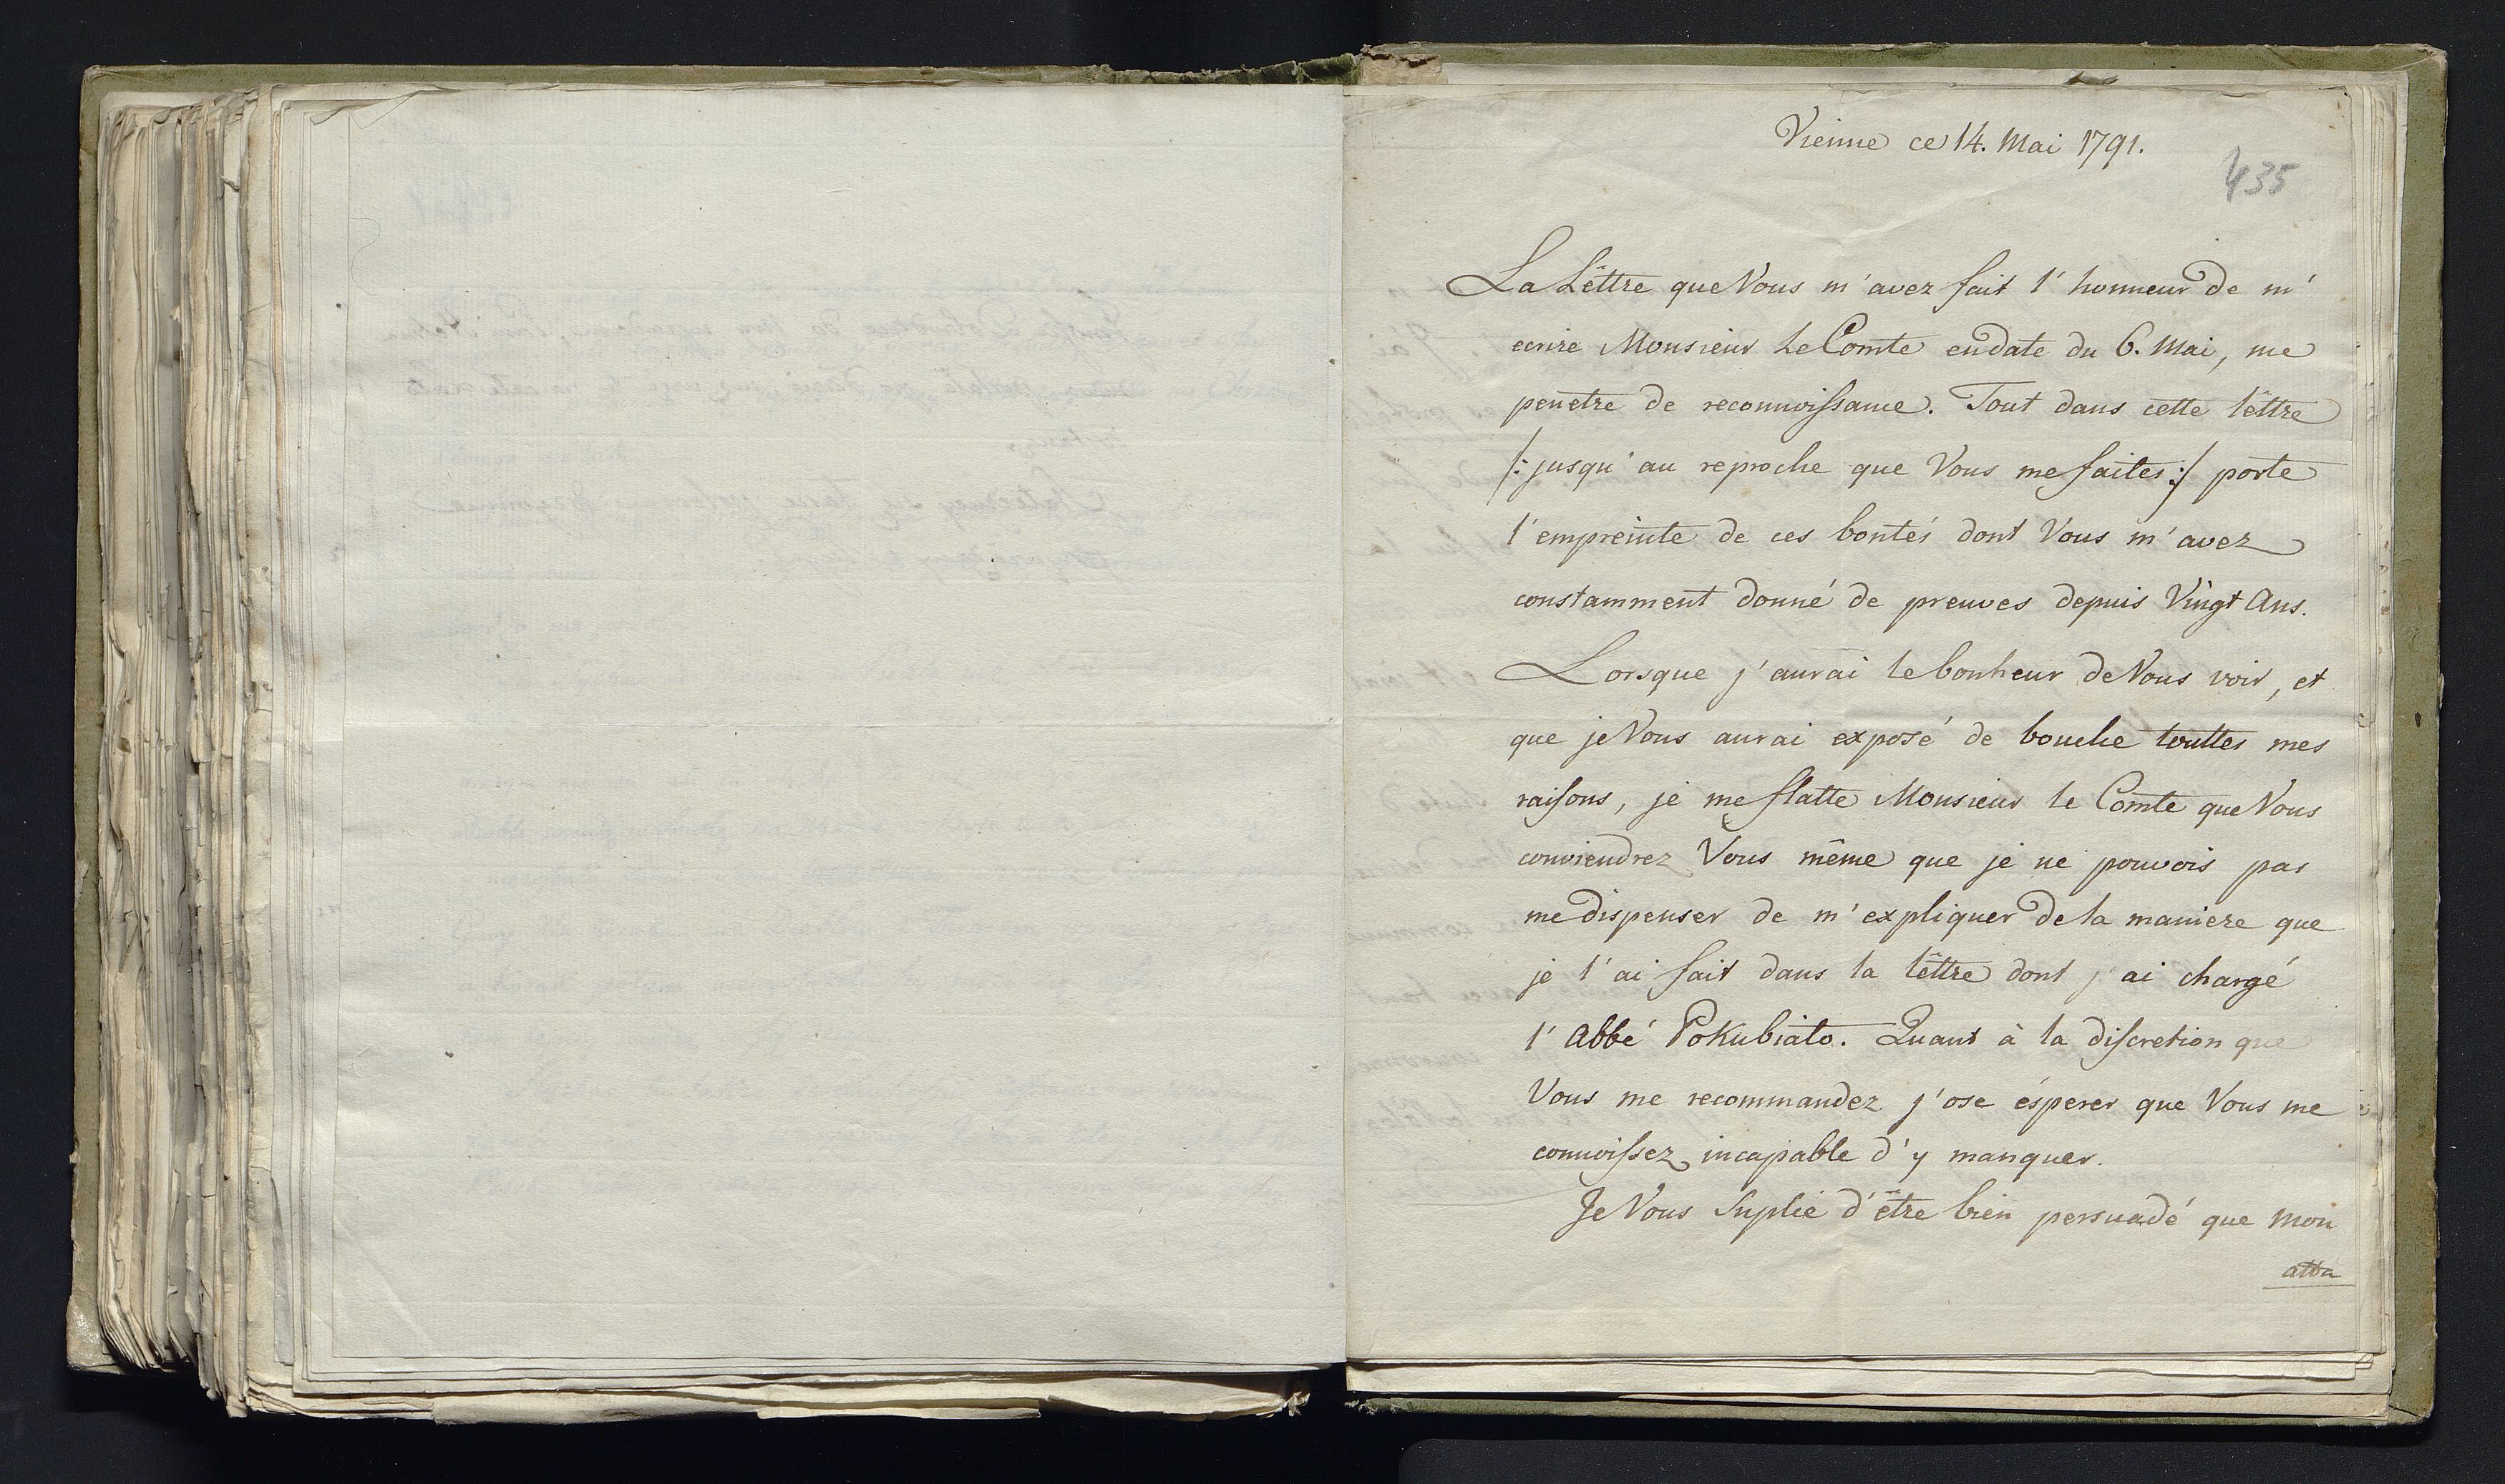 Vienne ce 14. Mai 1791.
435
La Lêttre que Vous m'avez fait l'honneur de m'
ecrire Monsieur Le Comte en date du 6. Mai, me
penetre de reconnoissance. Tout dans cette lêttre
/: jusqu'au reproche que Vous me faites :/ porte
l'empreinte de ces bontés dont Vous m'avez
constamment donné de preuves depuis Vingt Ans.
Lorsque j'aurai le bonheur de Vous voir, et
que je Vous aurai exposé de bouche touttes mes
raisons, je me flatte Monsieur le Comte que Vous
conviendrez Vous même que je ne pouvois pas
me dispenser de m'expliquer de la maniere que
je l'ai fait dans la lêttre dont j'ai chargé
l'Abbé Pokubiato. Quant à la discretion que
Vous me recommandez j'ose ésperer que Vous me
connoissez incapable d'y manquer.
Je Vous Suplie d'être bien persuadé que mon
atta